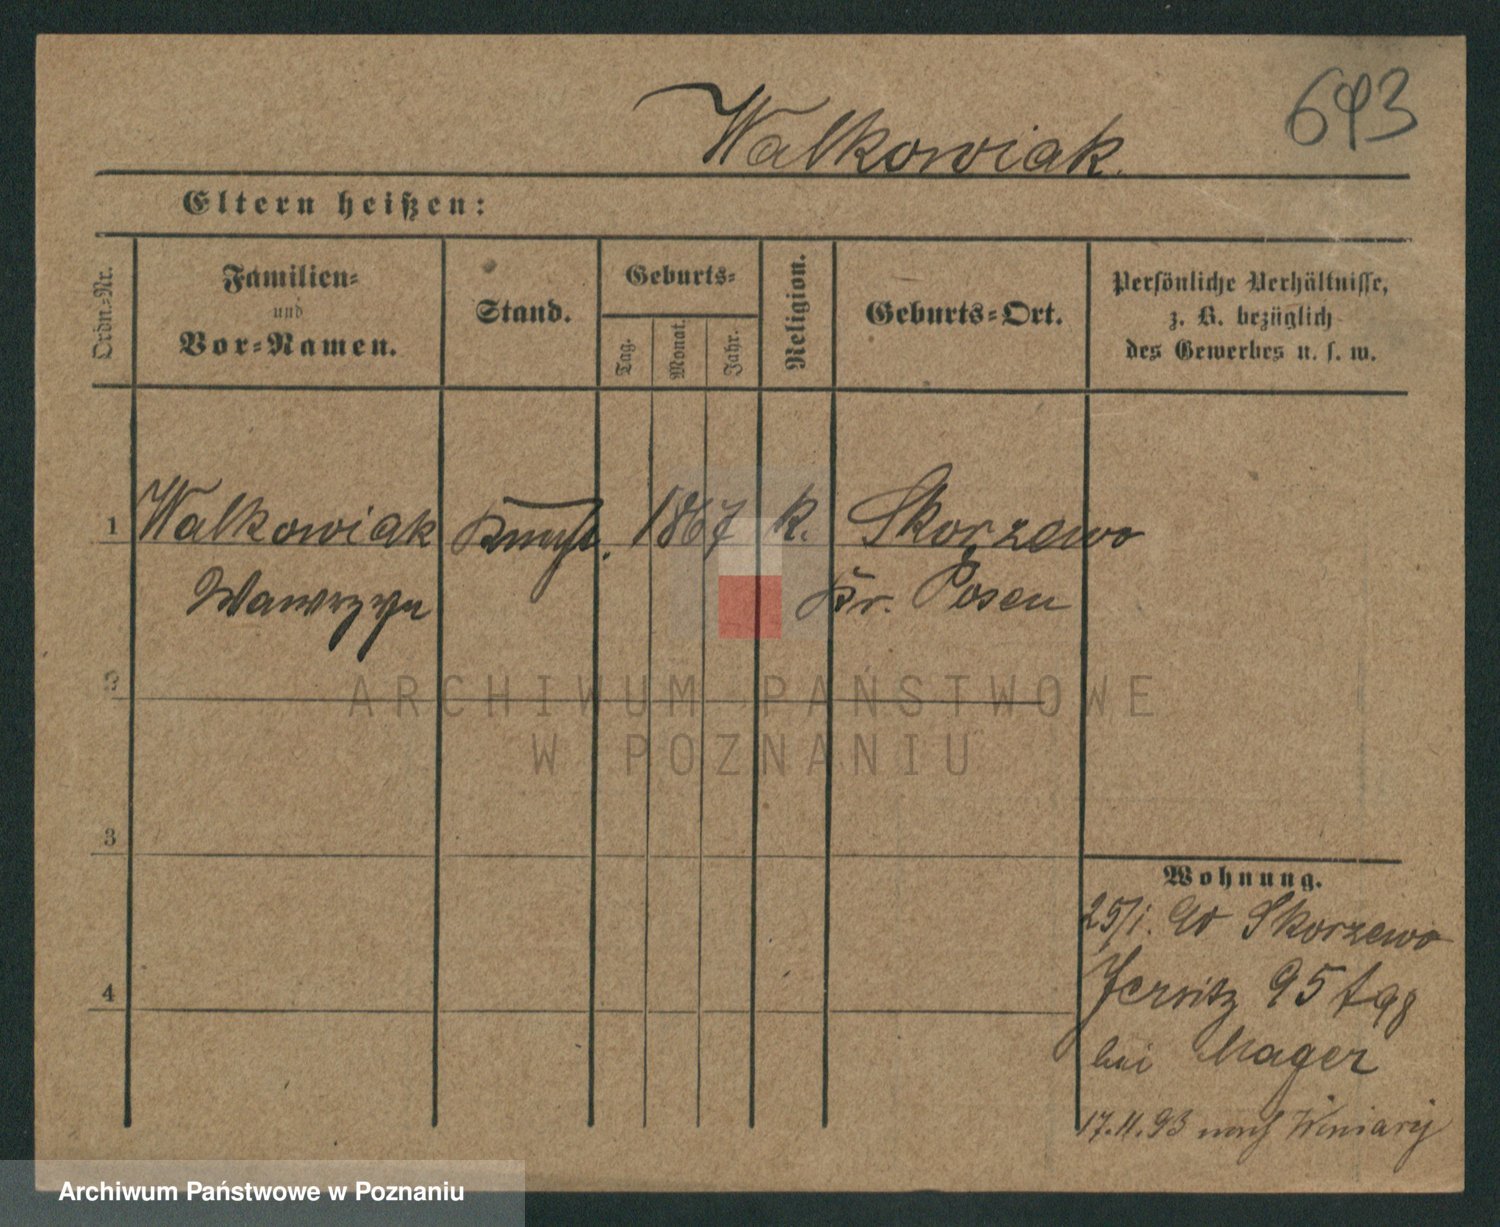 693
Walkowiak.
Eltern heißen:
Ordn.-Nr.
Familien-
und
Vor-Namen.
Stand.
Geburts-
Tag.
Monat.
Jahr.
Religion.
Geburts-Ort.
Persönliche Verhältnisse,
z. B. bezüglich
des Gewerbes u. s. w.
1 Walkowiak Knecht. 1867 k. Skorzewo
Wawrzyn Kr. Posen
2
3
4
Wohnung.
25/1. Skorzewo
Jersitz 95
bei Mager
17.11.93 nach Winiary
ARCHIWUM PAŃSTWOWE
W POZNANIU
Archiwum Państwowe w Poznaniu